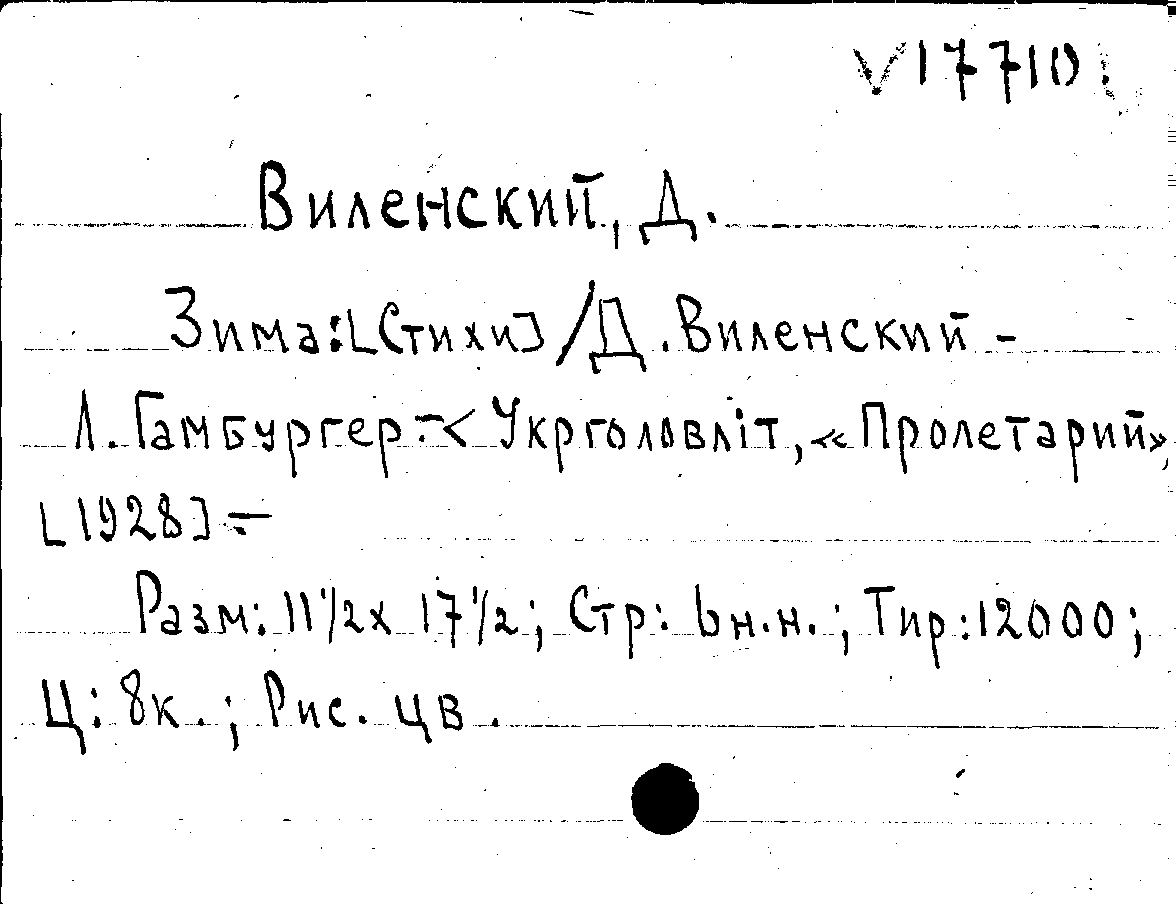 V 17710
Виленский, Д.
Зима: [Стихи] / Д. Виленский -
Л. Гамбургер. - < Укрголовліт, «Пролетарий»,
[1928] -
Разм: 11 1/2 x 17 1/2; Стр: 6 н.н.; Тир: 12000;
Ц: 8к.; Рис. цв.